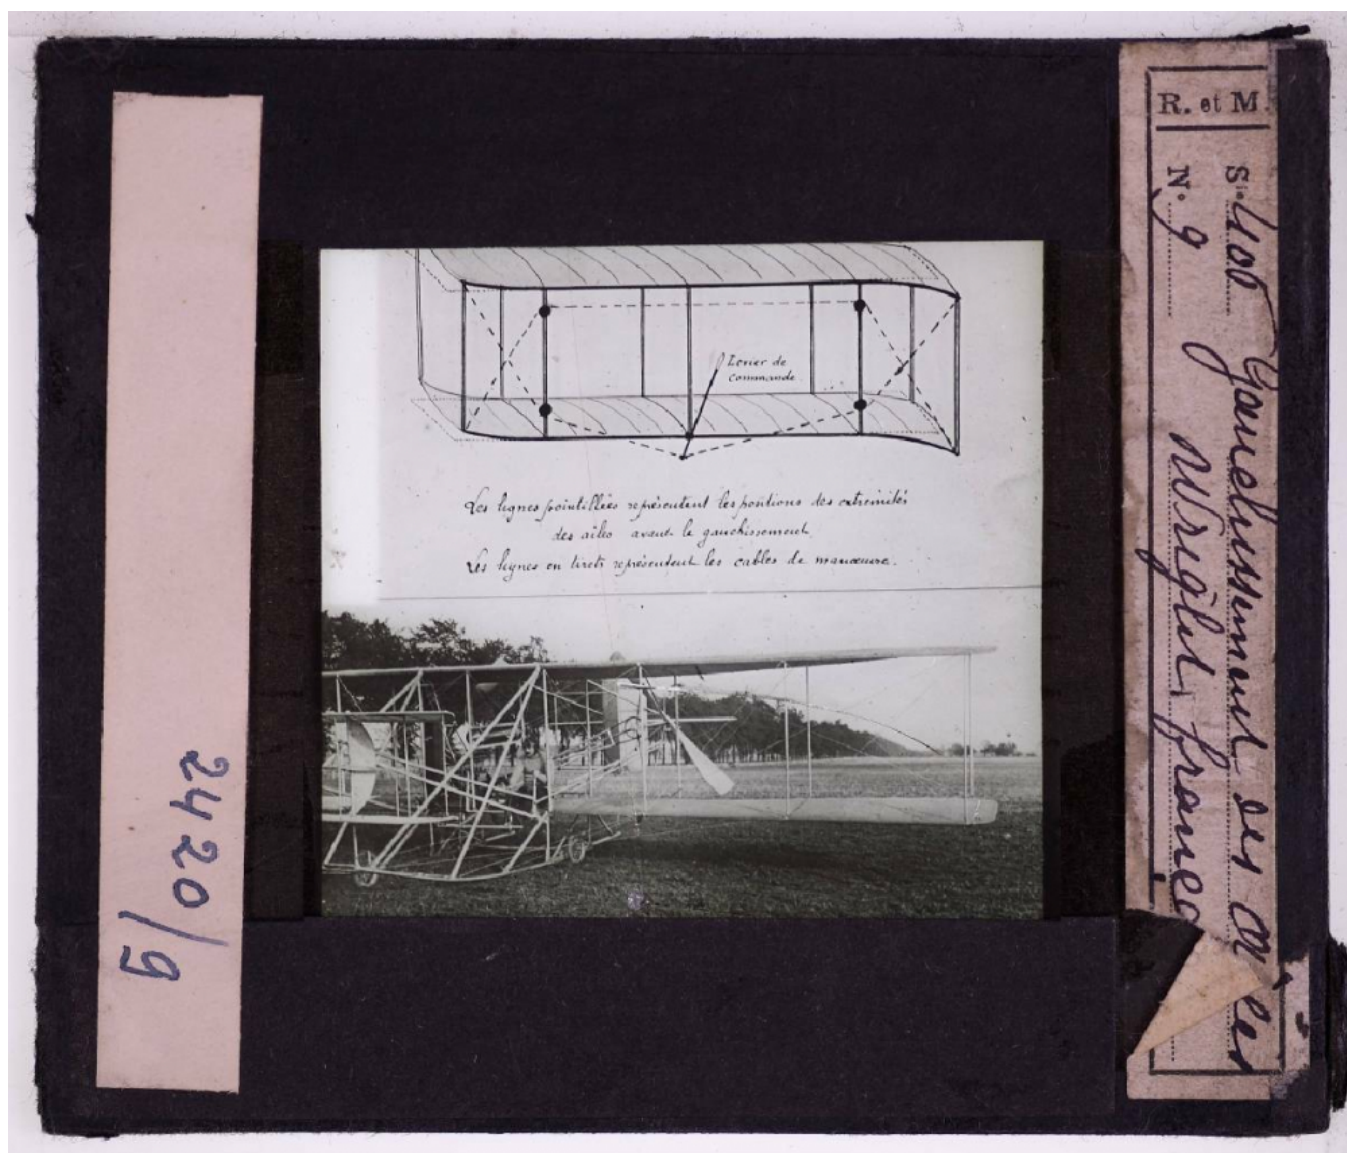 2420/9
Levier de
commande
Les lignes pointillées représentent les positions des extrémités
des ailes avant le gauchissement.
Les lignes en tirets représentent les cables de manœuvre.
R. et M.
Gauchissement des ailes
N. 9 Wright français